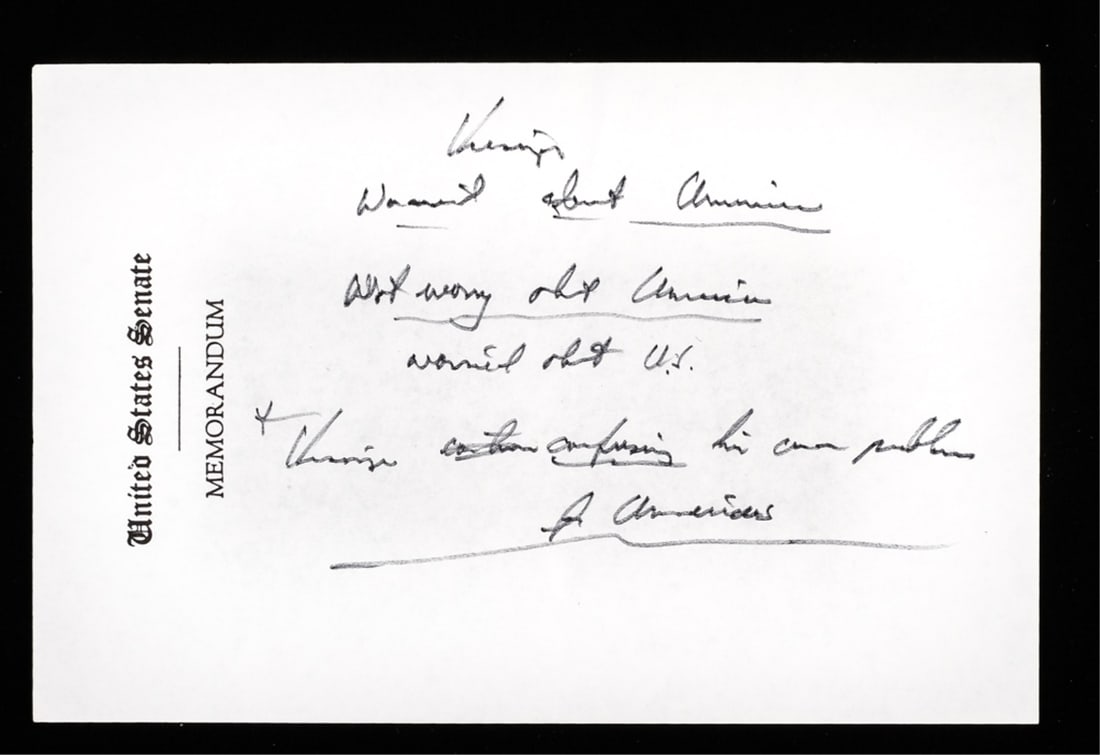 United States Senate
MEMORANDUM
Worried about America
Not worry abt America
worried abt U.S.
confusing his own problems
for America's